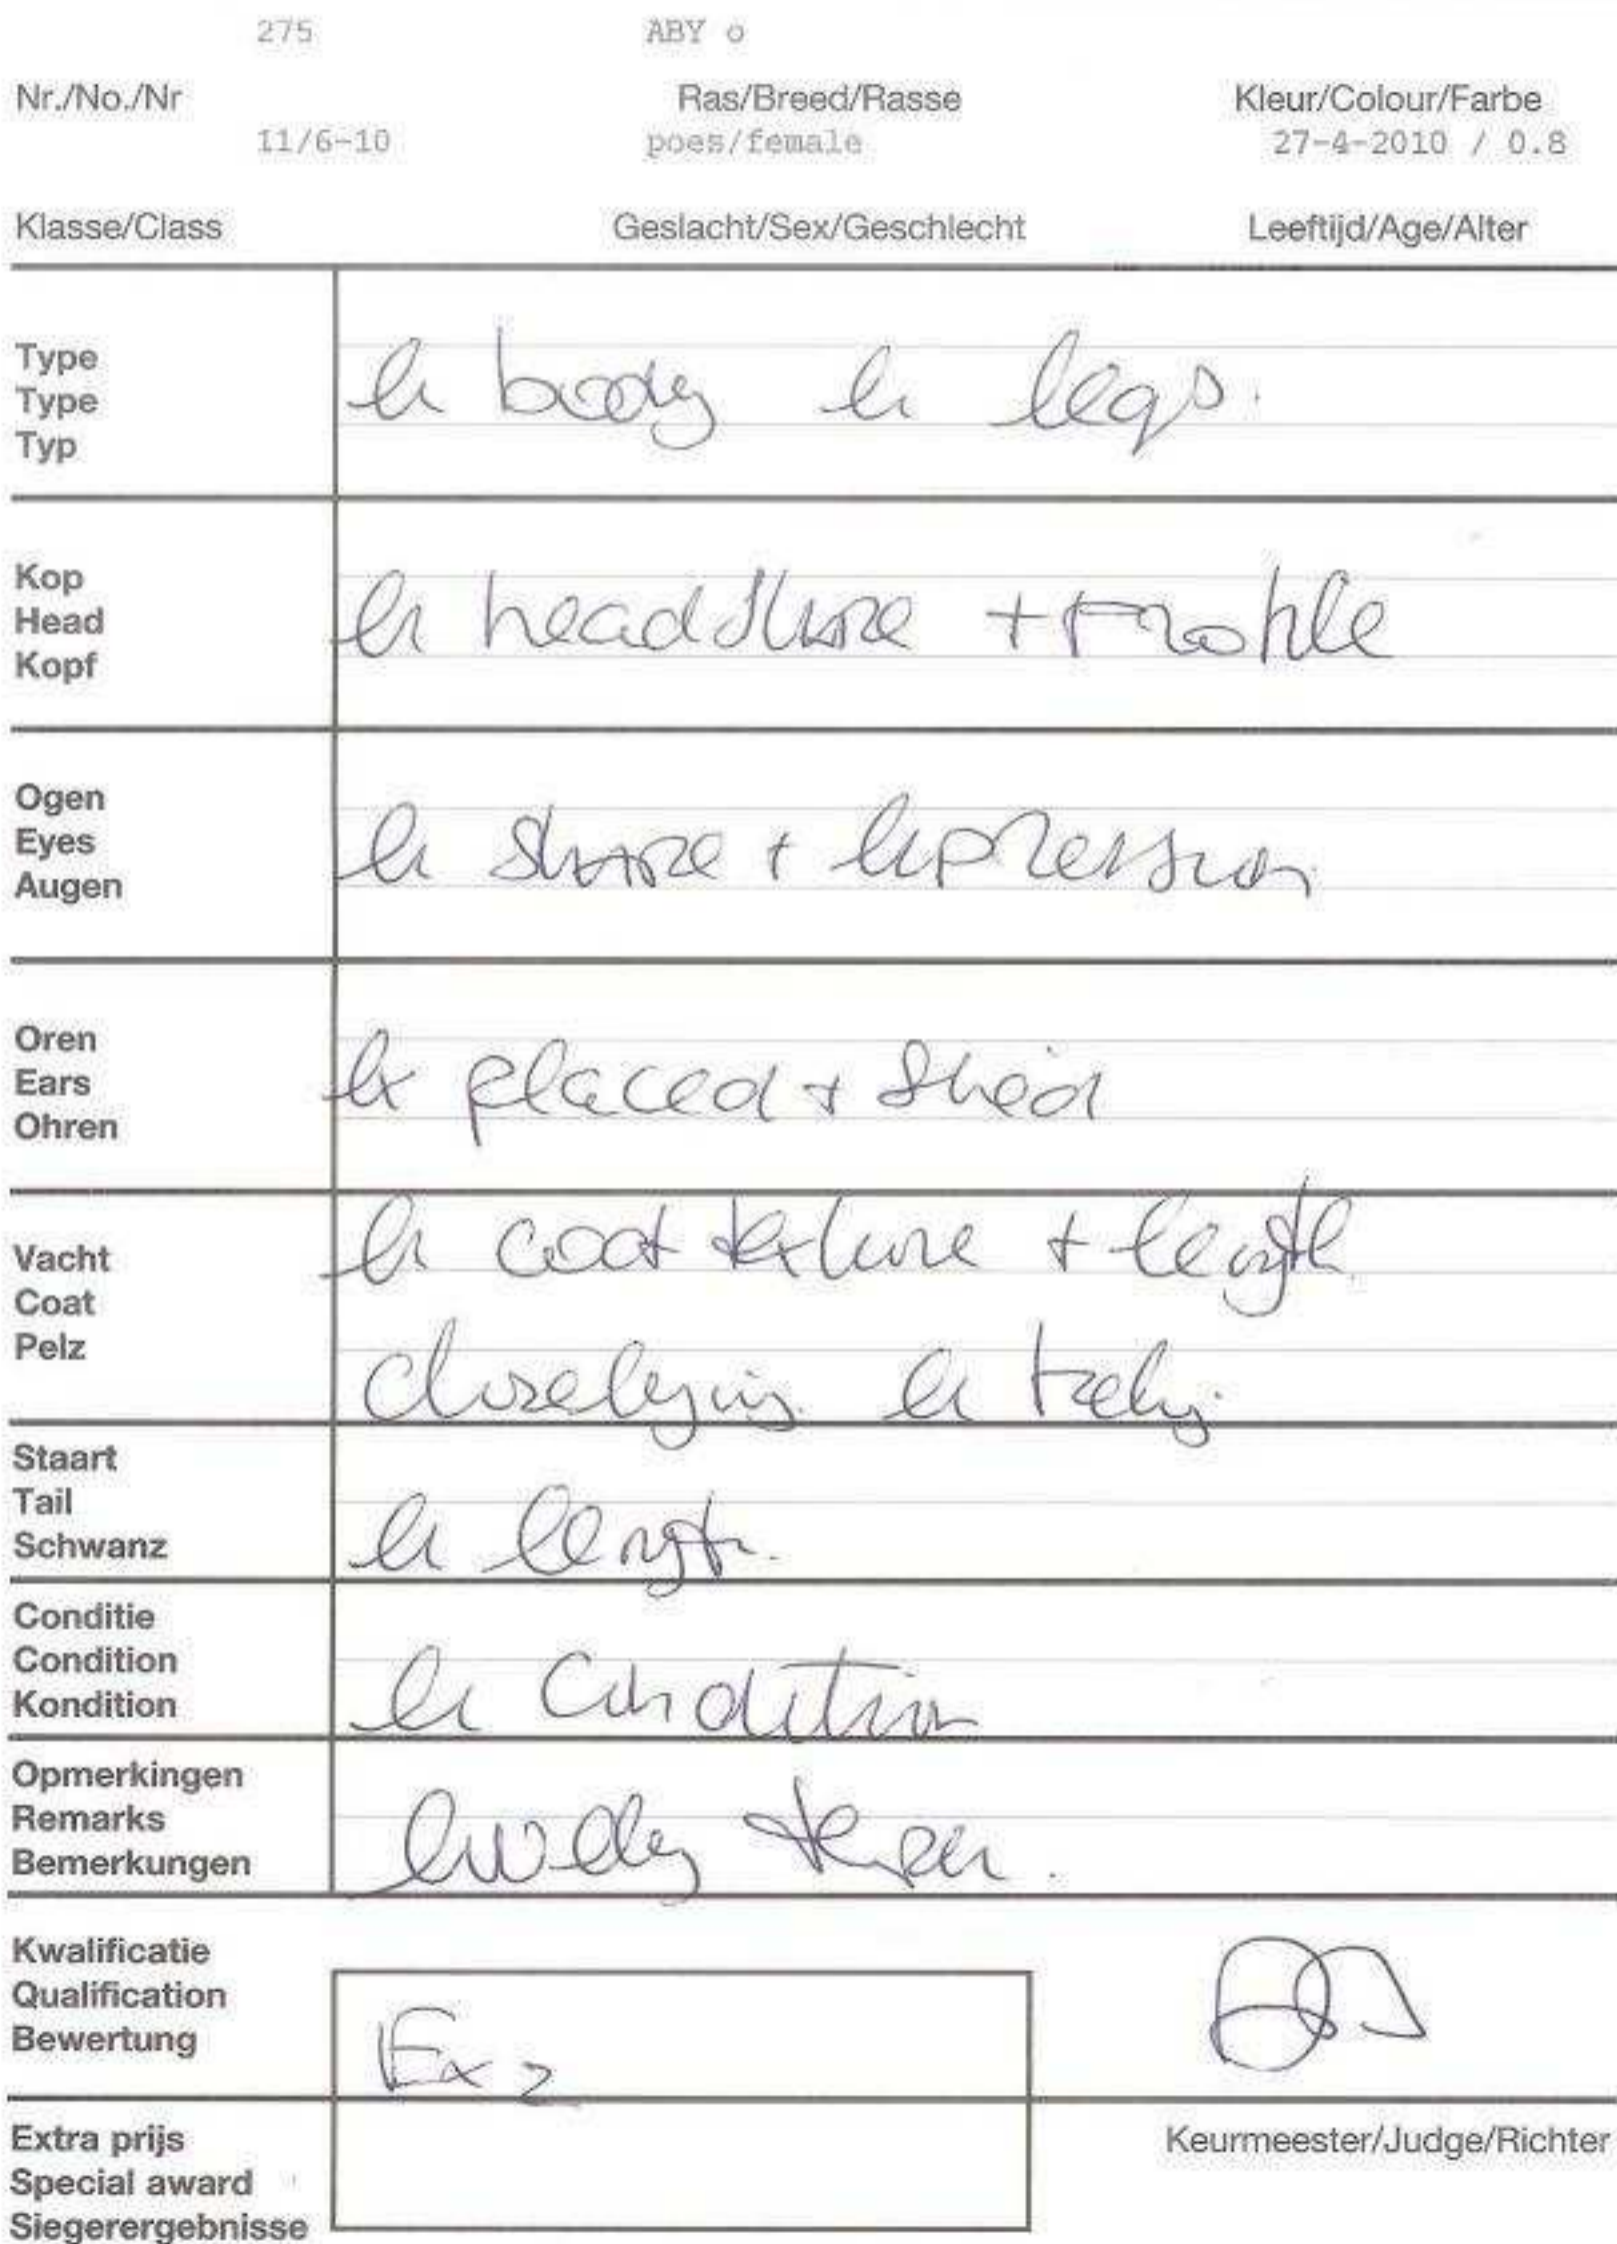 275 ABY o
Nr./No./Nr Ras/Breed/Rasse Kleur/Colour/Farbe
11/6-10 poes/female 27-4-2010 / 0.8
Klasse/Class Geslacht/Sex/Geschlecht Leeftijd/Age/Alter
Type
Type
Typ
Ex body Ex legs.
Kop
Head
Kopf
Ex head shape + profile
Ogen
Eyes
Augen
Ex shape + expression
Oren
Ears
Ohren
Ex placed + sized
Vacht
Coat
Pelz
Ex coat texture + length
closelying Ex
Staart
Tail
Schwanz
Ex length.
Conditie
Condition
Kondition
Ex Condition
Opmerkingen
Remarks
Bemerkungen
Kwalificatie
Qualification
Bewertung
Ex 2
Extra prijs
Special award
Siegerergebnisse
Keurmeester/Judge/Richter